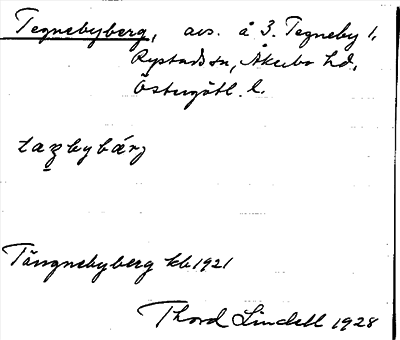 Tegnebyberg, avs. å 3. Tegneby 1,
Rystads sn, Åkerbo hd,
Östergötl. l.
taŋbybárj
Tängnebyberg kb 1921
Thord Lindell 1928